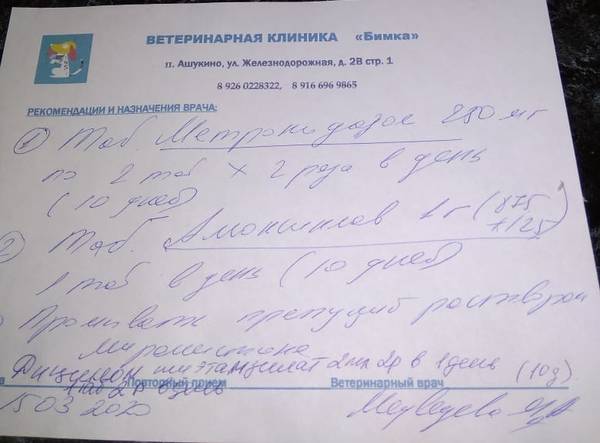 ВЕТЕРИНАРНАЯ КЛИНИКА «Бимка»
п. Ашукино, ул. Железнодорожная, д. 2В стр. 1
8 926 0228322, 8 916 696 9865
РЕКОМЕНДАЦИИ И НАЗНАЧЕНИЯ ВРАЧА:
1 Таб. Метронидазол 250 мг
по 2 таб х 2 раза в день
(10 дней)
2 Таб. Амоксиклав 1 г (875
+125)
1 таб в день (10 дней)
Промывать препуций раствором
мирамистина
Дицинон или этамзилат 2 мл 2р в 1 день (10д)
Повторный прием Ветеринарный врач
15 03 2020 Медведева